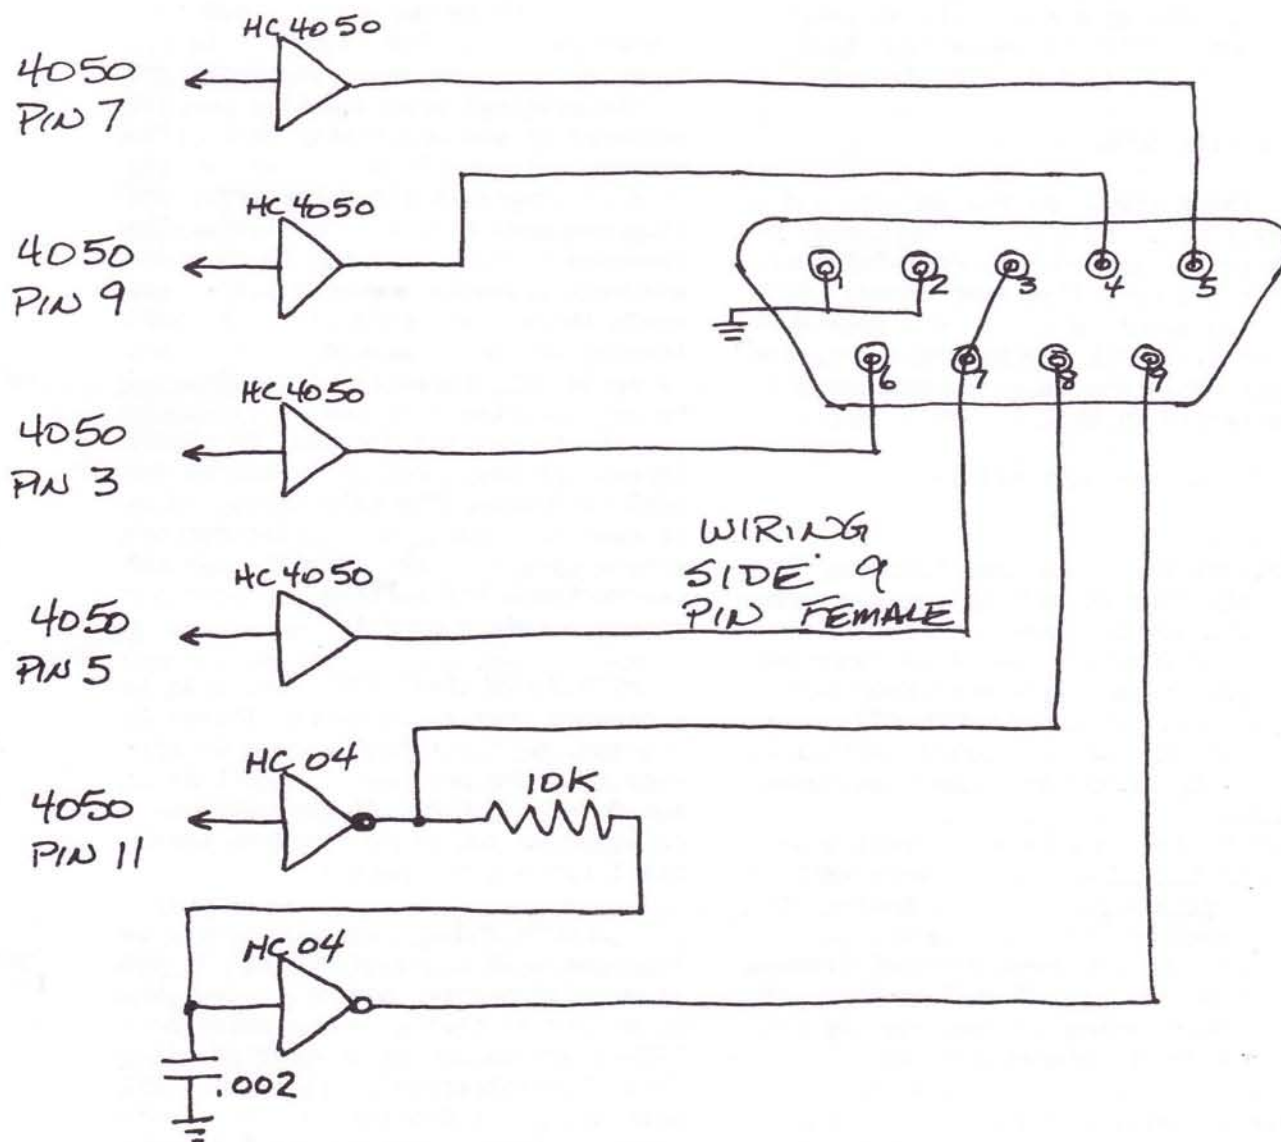 HC4050
4050
PIN 7
HC4050
4050
PIN 9
1 2 3 4 5
6 7 8 9
HC4050
4050
PIN 3
WIRING
SIDE 9
PIN FEMALE
HC4050
4050
PIN 5
HC04
10K
4050
PIN 11
HC04
.002